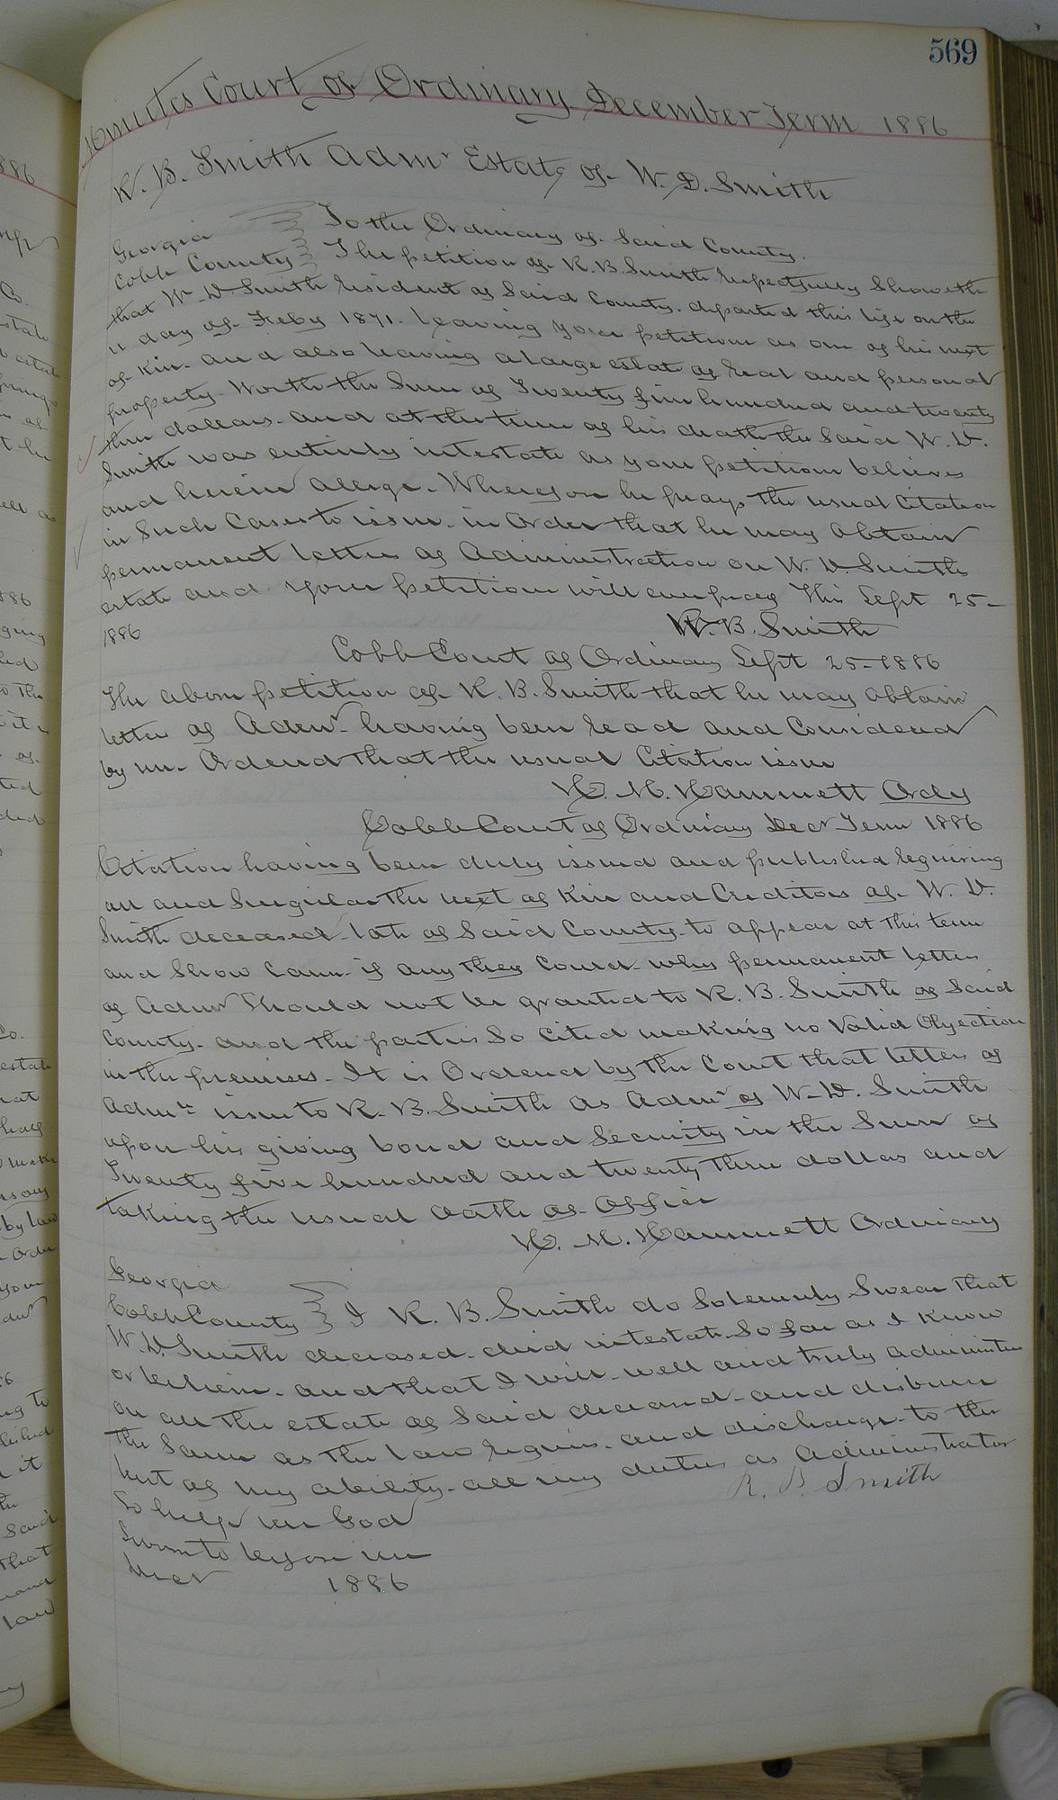 569
Minutes Court of Ordinary December Term 1886
R. B. Smith Admr Estate of W. D. Smith
Georgia } To the Ordinary of Said County.
Cobb County } The petition of R. B. Smith Respectfully Showeth
that W. D. Smith Resident of Said County, departed this life on the
11 day of Feby 1871. Leaving your petitioner as one of his next
of Kin. and also leaving a large estate of Real and personal
property. Worth the Sum of Twenty five hundred and twenty
three dollars. and at the time of his death the Said W. D.
Smith was entirely intestate as your petitioner believes
and herein allege. Wherefore he prays the usual Citation
in Such Cases to issue. in Order that he may Obtain
permanent Letters of Administration on W. D. Smith
estate and your petitioner will ever pray This Sept 25-
1886 R. B. Smith
Cobb Court of Ordinary Sept 25-1886
The above petition of R. B. Smith that he may Obtain
letters of Admr. having been read and Considered
by me. Ordered that the usual Citation issue
H. M. Hammett Ordy
Cobb Court of Ordinary Decr Term 1886
Citation having been duly issued and published requiring
all and Singular the next of Kin and Creditors of W. D.
Smith deceased late of Said County to appear at this term
and Show Cause if any they Could why permanent letters
of Admr Should not be granted to R. B. Smith of Said
County. and the parties So Cited making no Valid Objection
in the premises. It is Ordered by the Court that letters of
Admr issue to R. B. Smith as Admr of W. D. Smith
upon his giving bond and Security in the Sum of
Twenty five hundred and twenty three dollars and
taking the usual Oath of Office
H. M. Hammett Ordinary
Georgia
Cobb County } I R. B. Smith do Solemnly Swear that
W. D. Smith deceased. died intestate. So far as I Know
or believe. and that I will well and truly administer
on all the estate of Said deceased and disburse
the Same as the law requires. and discharge to the
best of my ability all my duties as Administrator
So help me God R. B. Smith
Sworn to before me
Decr 1886